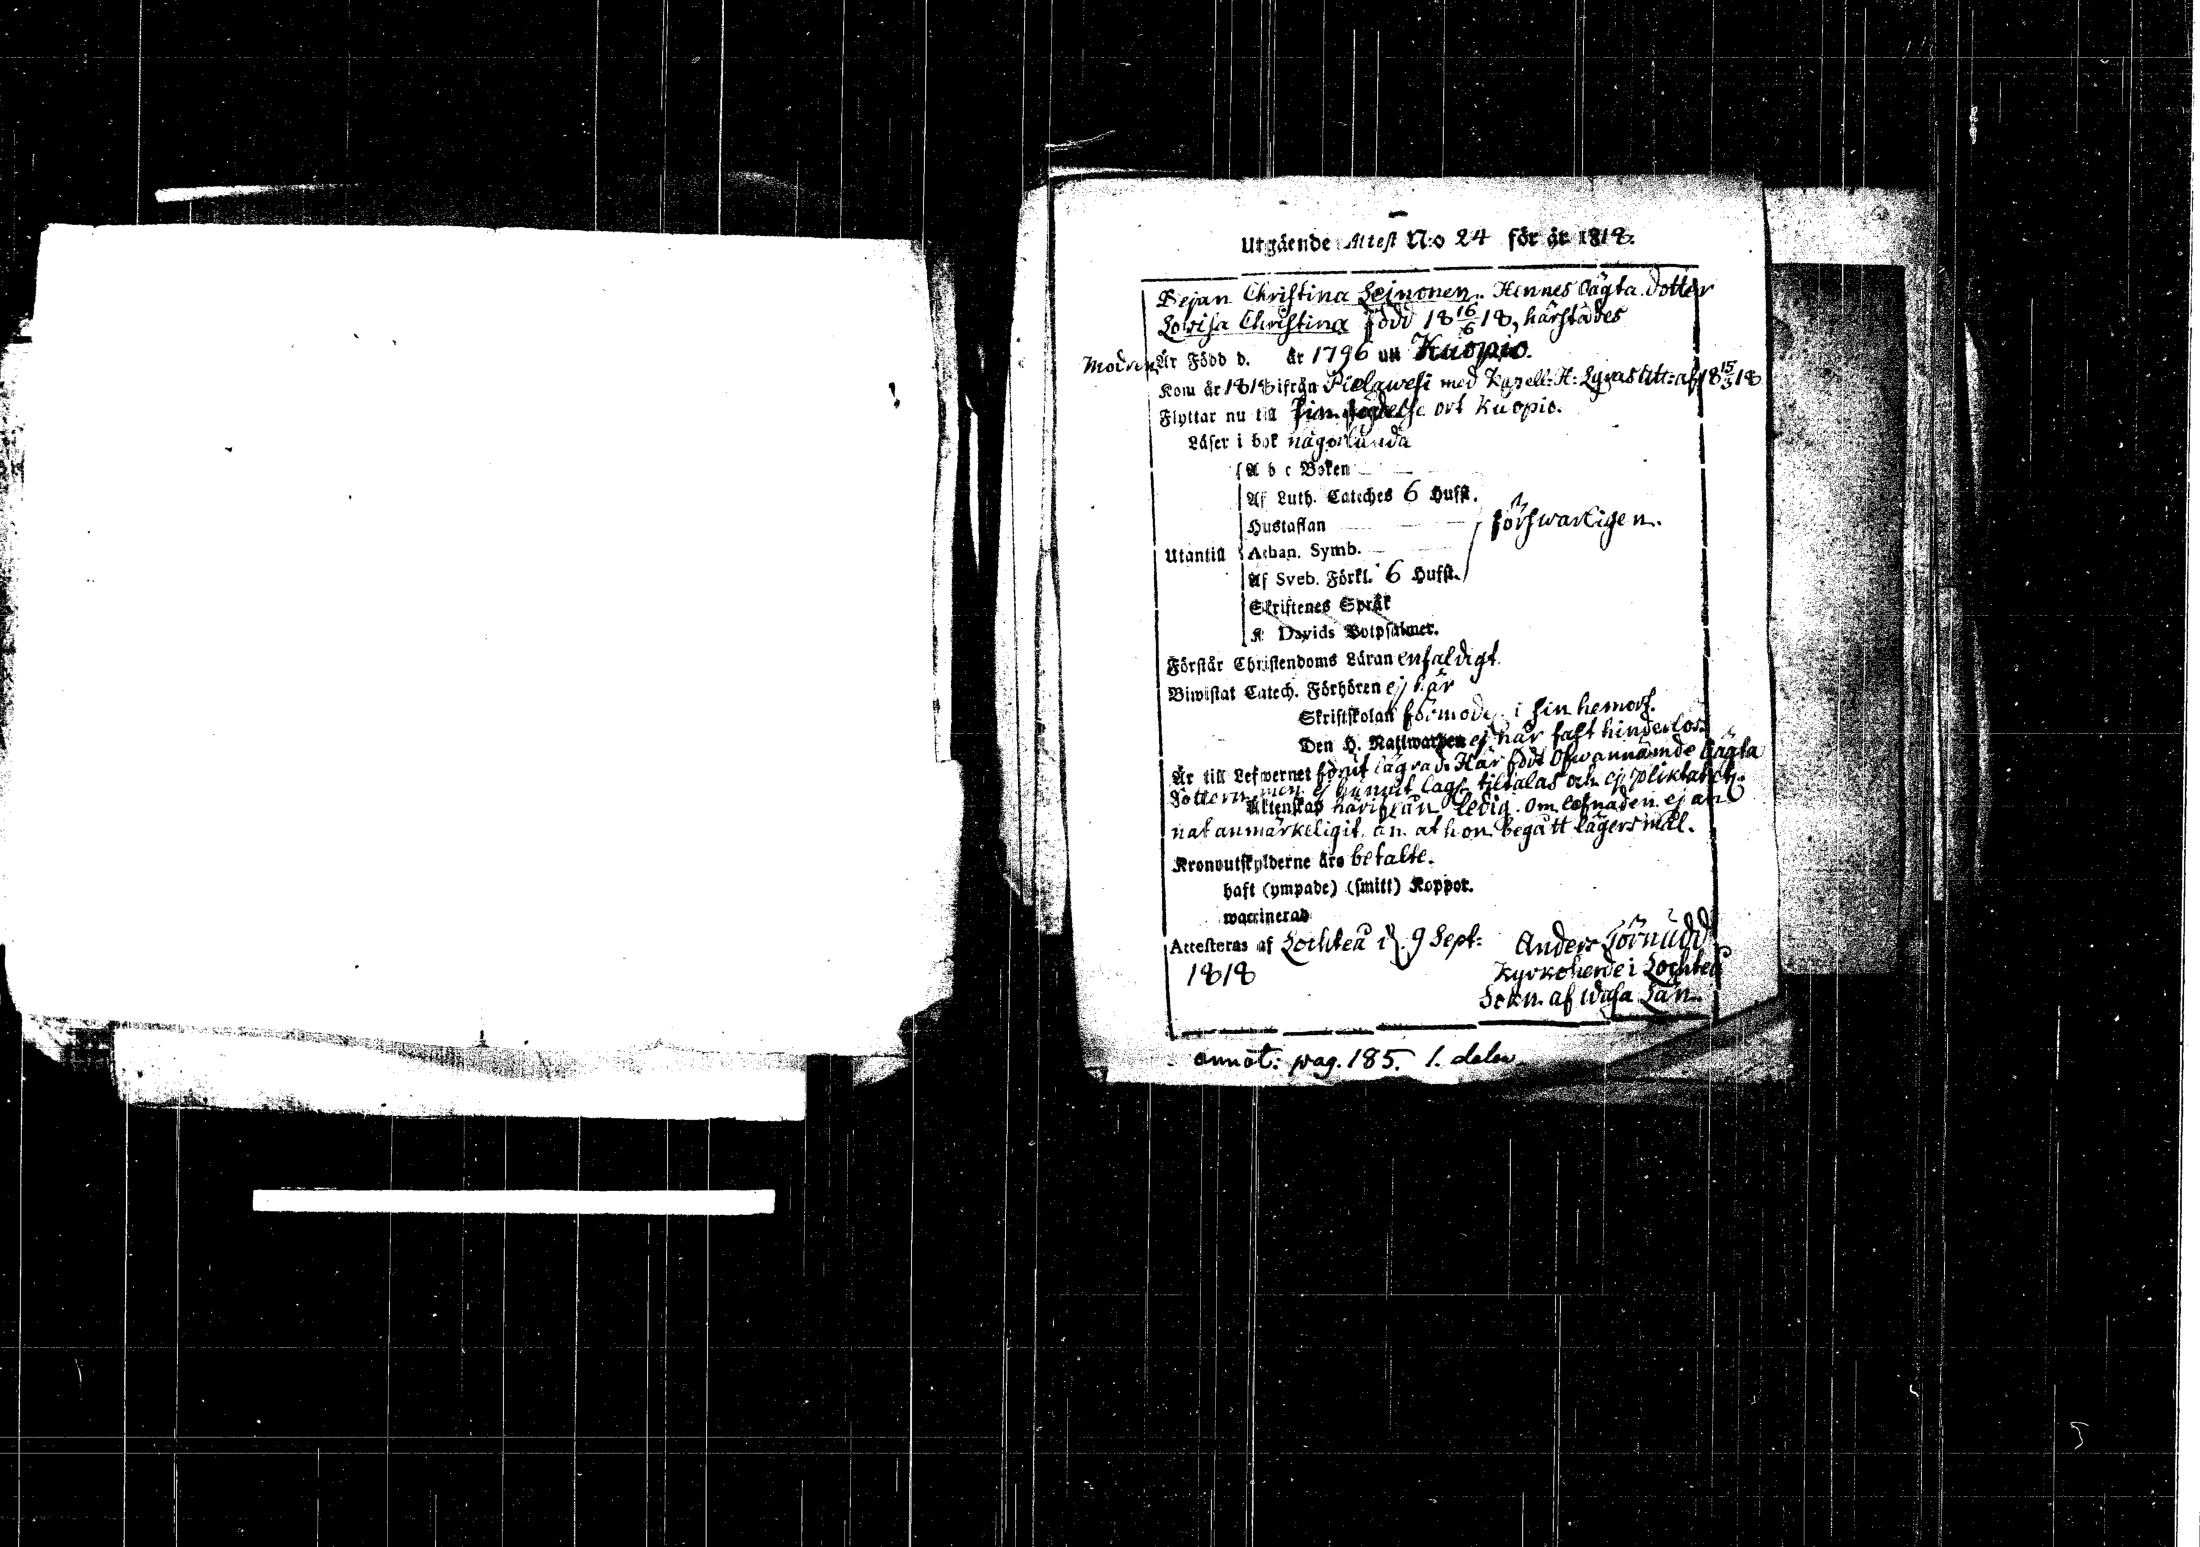 Utgående Attest N:o 24 för år 1818.
Pejan Christina Leinonen. Hennes oägta dotter
Lovisa Christina född 18 16/6 18, härstädes
Modren Är Född d. år 1796 uti Kuopio.
Kom år 1818 ifrån Pielawesi med Kapell: H: att: af 18 15/3 18
Flyttar nu till sin födelse ort Kuopio.
Läser i bok någorlunda
A b c Boken
Af Luth. Cateches 6 Hufst.
Hustaflan
försvarligen.
Utantill Athan. Symb.
Af Sveb. Förkl. 6 Hufst.
Skriftenes Språk
K Davids Botpsalmer.
Förstår Christendoms Läran enfaldigt
Biwistat Catech. Förhören ej här
Skriftskolan i sin hemort.
Den H. Nattwarden ej här fast hinderlös.
Är till Lefwernet lägrad. Här född Ofwannämde oägta
Dottern men ej tiltalas och ej pliktat
Äktenskap härifrån ledig. Om lefnaden ej an
nat anmärkeligit än at hon begått lägersmål.
Kronoutskylderne äro betalte.
haft (ympade) (smitt) Koppor.
waccinerad
Attesteras af Lochteå d. 9 Sept: Anders Törnudd
1818 Kyrkoherde i Lochteå
Sokn af Wasa Län.
annot: pag. 185. 1. delen